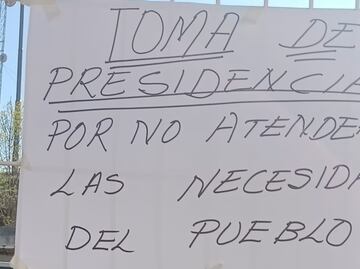 TOMA DE
PRESIDENCIA
POR NO ATENDE
LAS NECESIDA
DEL PUEBLO